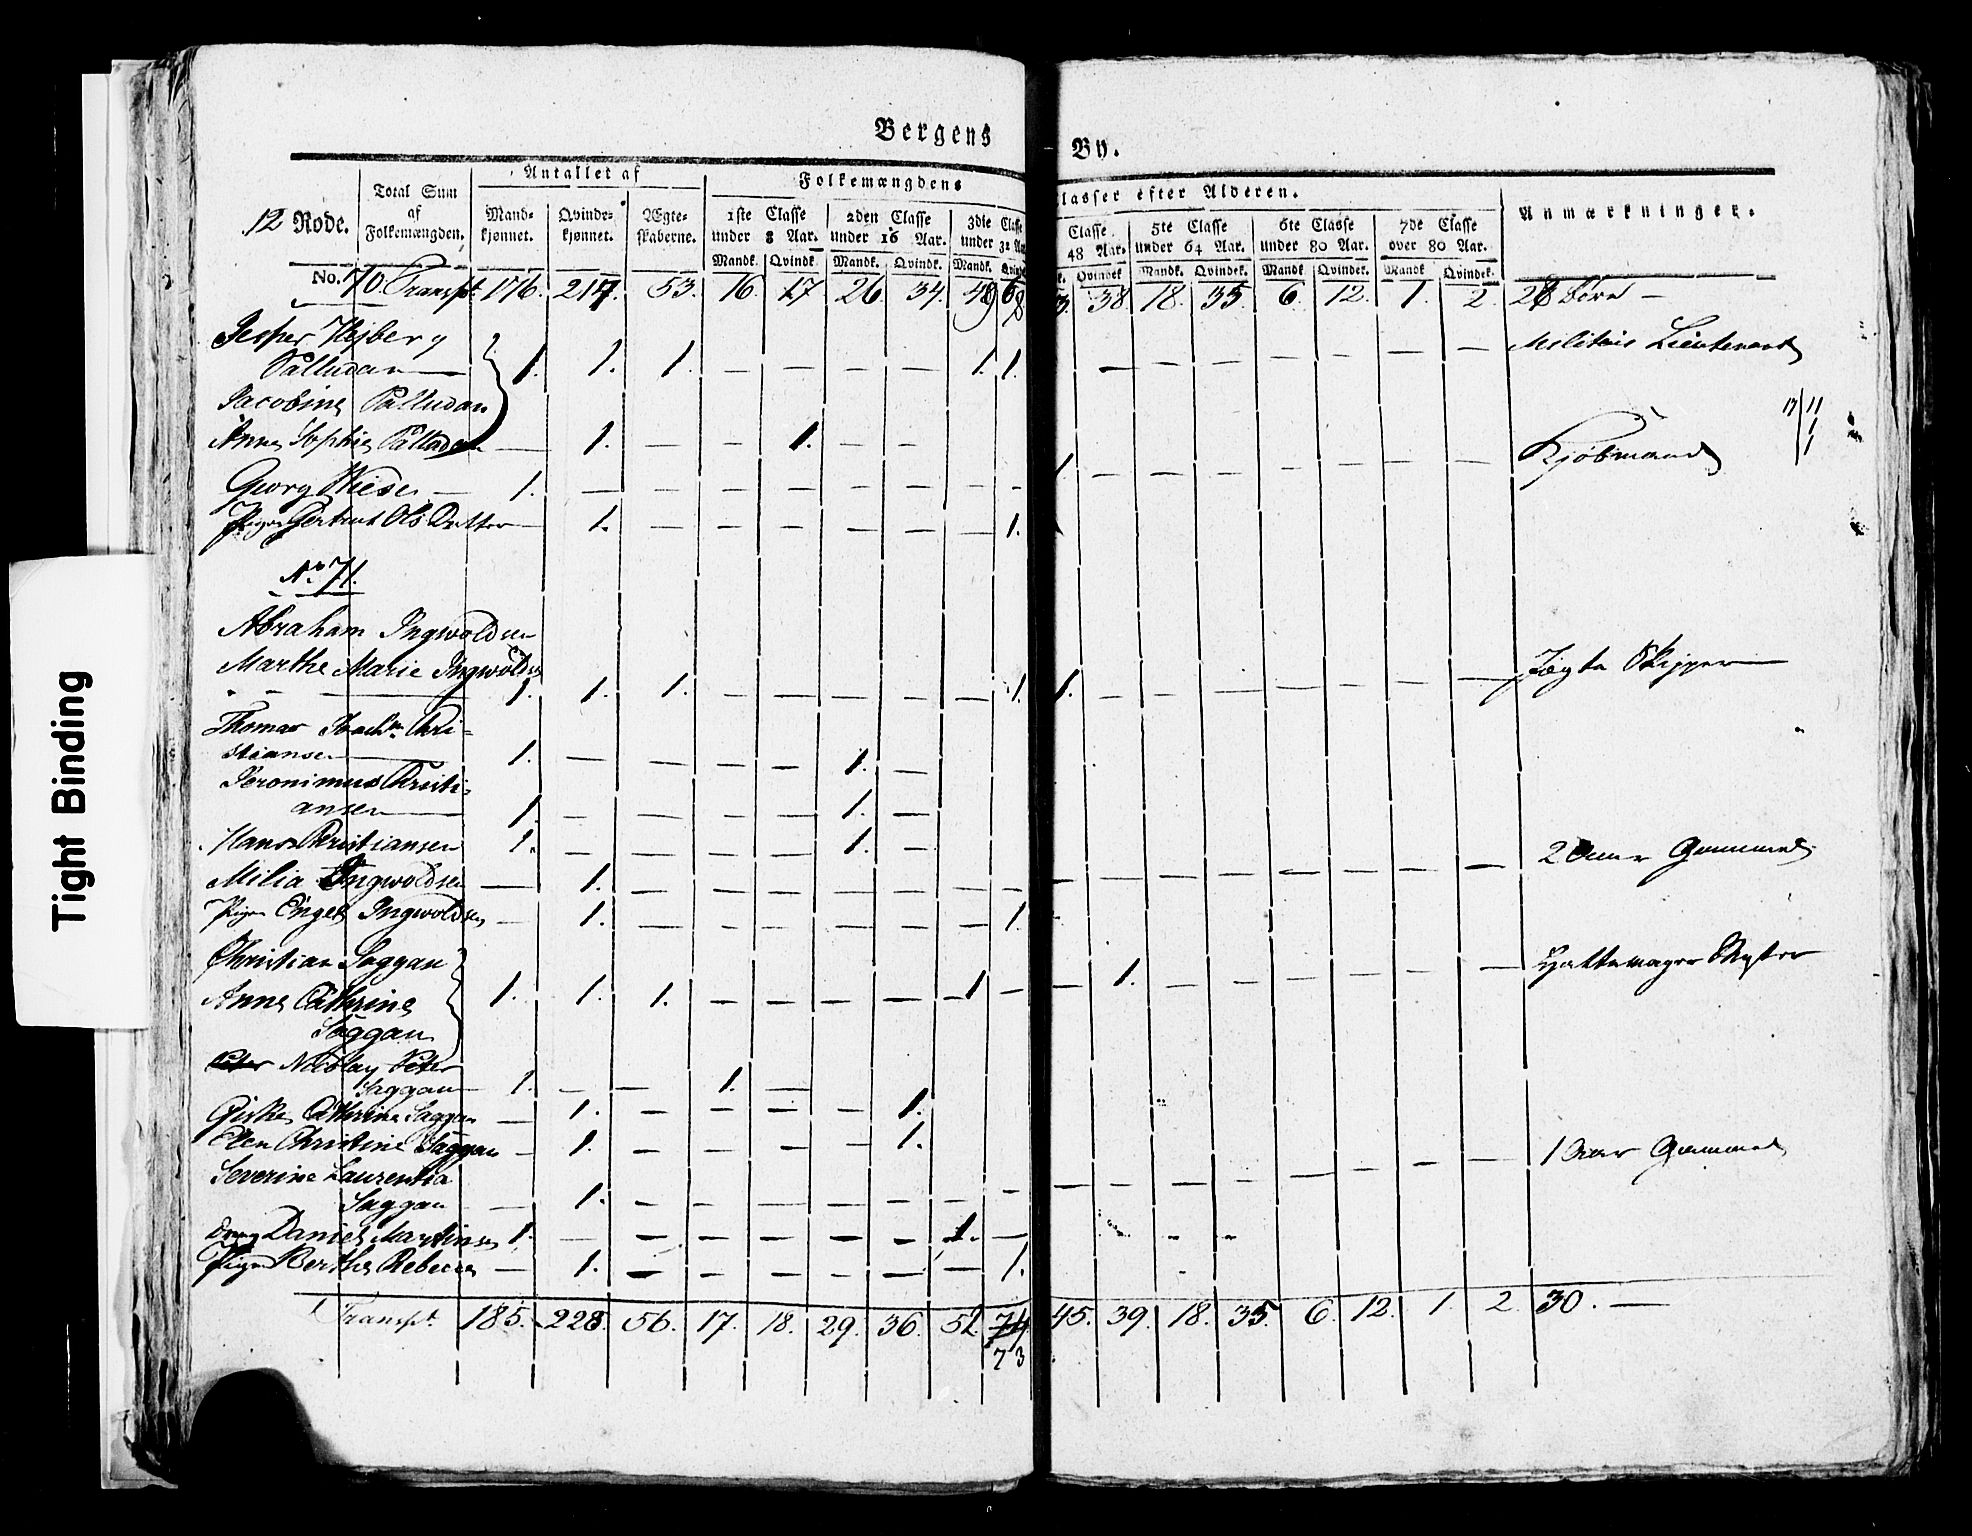 Tight Binding
Bergens By.
12 Rode.
Total Sum af Folkemængden.
Antallet af
Mandkjønnet.
Qvindekjønnet.
Ægteskaberne.
Folkemængdens Classer efter Alderen.
1ste Classe under 8 Aar.
2den Classe under 16 Aar.
3die Classe under 32 Aar
Classe 48 Aar.
5te Classe under 64 Aar.
6te Classe under 80 Aar.
7de Classe over 80 Aar.
Anmærkninger.
Mandk. Qvindk. Mandk. Qvindk. Mandk. Qvindk. Qvindek Mandk. Qvindek. Mandk Qvindek. Mandk Qvindek.
No. 70. Transpt. 176. 217. 53. 16. 17 26. 34. 49 68 3. 38. 18. 35. 6. 12. 1. 2. 28 Børn —
Jesper Hejberg
Palludan — 1. 1. 1. — — — — 1. 1. — — — — — — — Militair Lieutenant
Jacobine Palludan
Anne Sophie Palludan — 1. — — 1. — —
Georg Wiese — 1. — — — — — — — — 1 — — — — — — — Kjøbmand
17/11
1
1
Pigen Gertrut Ols Datter — 1. — — — — — — 1.
No 71.
Abraham Ingwoldsen
Marthe Marie Ingwoldsen
— 1. 1. 1. — — — — — 1. 1. — — — — — — — Jægte Skipper —
Thomas Joachm. Chri-
stiansen — 1. — — — — 1. —
Jeronimus Christi-
ansen — 1. — — — — 1. —
Hans Christiansen 1. — — — — 1. —
Milia Ingwoldsen — 1. — — — — — — — — — — — — — — — 2 Aar Gammel
Pigen Engel Ingwoldsen — 1. — — — — — — 1.
Christian Saggau
Anne Cathrine 1. 1. 1. — — — — 1 — — 1. — — — — — — Hattemager Mester
Saggau
Nicolay Peter
Saggau — 1. — — 1. —
Giske Cathrine Saggau — 1. — — — — 1.
Elen Christine Saggau — 1. — — — — 1.
Severine Laurentia
Saggau — 1. — — — — — — — — — — — — — — — 1 Aar Gammel
Dreng Daniel Martinsen 1. — — — — — — 1. —
Pigen Berthe Rebecca — 1. — — — — — — 1.
Transpt. 185. 228. 56. 17. 18. 29. 36. 52. 74 45. 39. 18. 35. 6. 12. 1. 2. 30. —
73